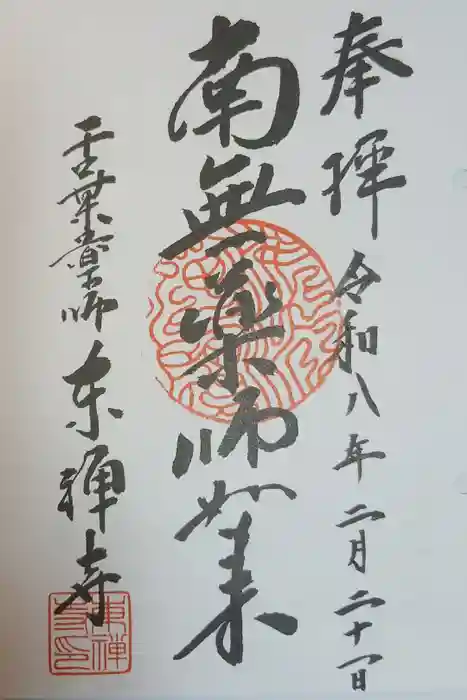 奉拝
令和八年二月二十一日
南無薬師如来
言葉薬師
東禅寺
東禅寺印